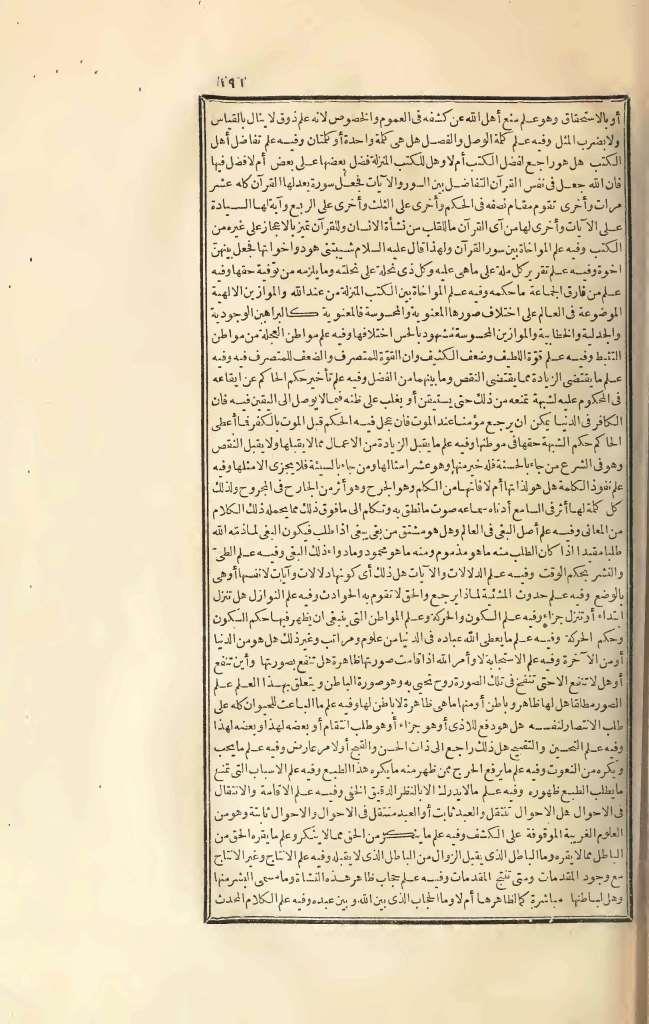 ١٩١
أو بالاستحقاق وهو علم منع أهل الله عن كشفه في العموم والخصوص لانه علم ذوق لا ينال بالقياس
ولا بضرب المثل وفيه علم كلمة الوصل والفصل هل هي كلمة واحدة أو كلمتان وفيه علم تفاضل أهل
الكتب هل هو راجع لفضل الكتب أم لا وهل للكتب المنزلة فضل بعضها على بعض أم لا فضل فيها
فان الله جعل في نفس القرآن التفاضل بين السور والآيات فجعل سورة بعدلها القرآن كله عشر
مرات وأخرى تقوم مقام نصفه في الحكم وأخرى على الثلث وأخرى على الربع وآية لها السيادة
على الآيات وأخرى لها من آى القرآن ما للقلب من نشأة الانسان وللقرآن تميز بالاعجاز على غيره من
الكتب وفيه علم المواخاة بين سور القرآن ولهذا قال عليه السلام شيبتني هود واخواتها فجعل بينهن
اخوة وفيه علم تقرير كل ملة على ما هى عليه وكل ذى نحلة على نحلته وما يلزمه من توفية حقها وفيه
علم من فارق الجماعة ما حكمه وفيه علم المواخاة بين الكتب المنزلة من عند الله والموازين الالهية
الموضوعة في العالم على اختلاف صورها المعنوية والمحسوسة فالمعنوية كالبراهين الوجودية
والجدلية والخطابية والموازين المحسوسة مشهود بالحس اختلافها وفيه علم مواطن العجلة من مواطن
التثبط وفيه علم قوة اللطيف وضعف الكثيف وان القوة للمتصرف والضعف للمتصرف فيه وفيه
علم ما يقتضى الزيادة مما يقتضى النقص وما بينهما من الفضل وفيه علم تأخير حكم الحاكم عن ايقاعه
في المحكوم عليه لشبهة تمنعه من ذلك حتى يستيقن أو يغلب على ظنه فيما لا يوصل الى اليقين فيه فان
الكافر في الدنيا يمكن ان يرجع مؤمنا عند الموت فان عجل فيه الحكم قبل الموت بالكفر فما أعطى
الحاكم حكم الشبهة حقها في موطنها وفيه علم ما يقبل الزيادة من الاعمال مما لا يقبلها ولا يقبل النقص
وهو في الشرع من جاء بالحسنة فله خير منها وهو عشر امثالها ومن جاء بالسيئة فلا يجزى الا مثلها وفيه
علم نفوذ الكلمة هل هو لذاتها أم لا فانها من الكلم وهو الجرح وهو أثر من الجارح في المجروح ولذلك
كل كلمة لها أثر في السامع أدناه سماعه صوت ما نطق به وتكلم الى ما فوق ذلك مما يحمله ذلك الكلام
من المعانى وفيه علم أصل البغى في العالم وهل هو مشتق من بغى يبغى اذا طلب فيكون البغى لما ذمه الله
طلبا مقيدا اذ كان الطلب منه ما هو مذموم ومنه ما هو محمود وما دواء ذلك البغى وفيه علم الطى
والنشر بحكم الوقت وفيه علم الدلالات والآيات هل ذلك أى كونها دلالات وآيات لانفسها أو هى
بالوضع وفيه علم حدوث المشيئة لماذا يرجع والحق لا تقوم به الحوادث وفيه علم النوازل هل تنزل
ابتداء أو تنزل جزاء وفيه علم السكون والحركة وعلم المواطن التي ينبغى ان يظهر فيها حكم السكون
وحكم الحركة وفيه علم ما يعطى الله عباده في الدنيا من علوم ومراتب وغير ذلك هل هو من الدنيا
أو من الآخرة وفيه علم الاستجابة لاوامر الله اذا قامت صورتها ظاهرة هل تنفع بصورتها وأين تنفع
أو هل لا تنفع الا حتى تنفخ في تلك الصورة روح تحيى به وهو صورة الباطن ويتعلق بهذا العلم علم
الصور مطلقا هل لها ظاهر وباطن أو منها ما هى ظاهرة لا باطن لها وفيه علم ما الباعث للحيوان كله على
طلب الانتصار لنفسه هل هو دفع للاذى أو هو جزاء أو هو طلب انتقام أو بعضه لهذا وبعضه لهذا
وفيه علم التحسين والتقبيح هل ذلك راجع الى ذات الحسن والقبيح أو لامر عارض وفيه علم ما يجب
ويكره من النعوت وفيه علم ما يرفع الحرج ممن ظهر منه ما يكره هذا الطبع وفيه علم الاسباب التي تمنع
ما يطلب الطبع ظهوره وفيه علم ما لا يدرك الا بالنظر الدقيق الخفى وفيه علم الاقامة والانتقال
في الاحوال هل الاحوال تنتقل والعبد ثابت أو العبد منتقل في الاحوال والاحوال ثابتة وهو من
العلوم الغريبة الموقوفة على الكشف وفيه علم ما ينكر من الحق مما لا ينكر وعلم ما يقره الحق من
الباطل مما لا يقره وما الباطل الذى يقبل الزوال من الباطل الذى لا يقبله وفيه علم الانتاج وغير الانتاج
مع وجود المقدمات ومتى تنتج المقدمات وفيه علم حجاب ظاهر هذه النشأة وما سمى البشر منها
وهل لباطنها مباشرة كما لظاهرها أم لا وما الحجاب الذى بين الله وبين عبده وفيه علم الكلام المحدث